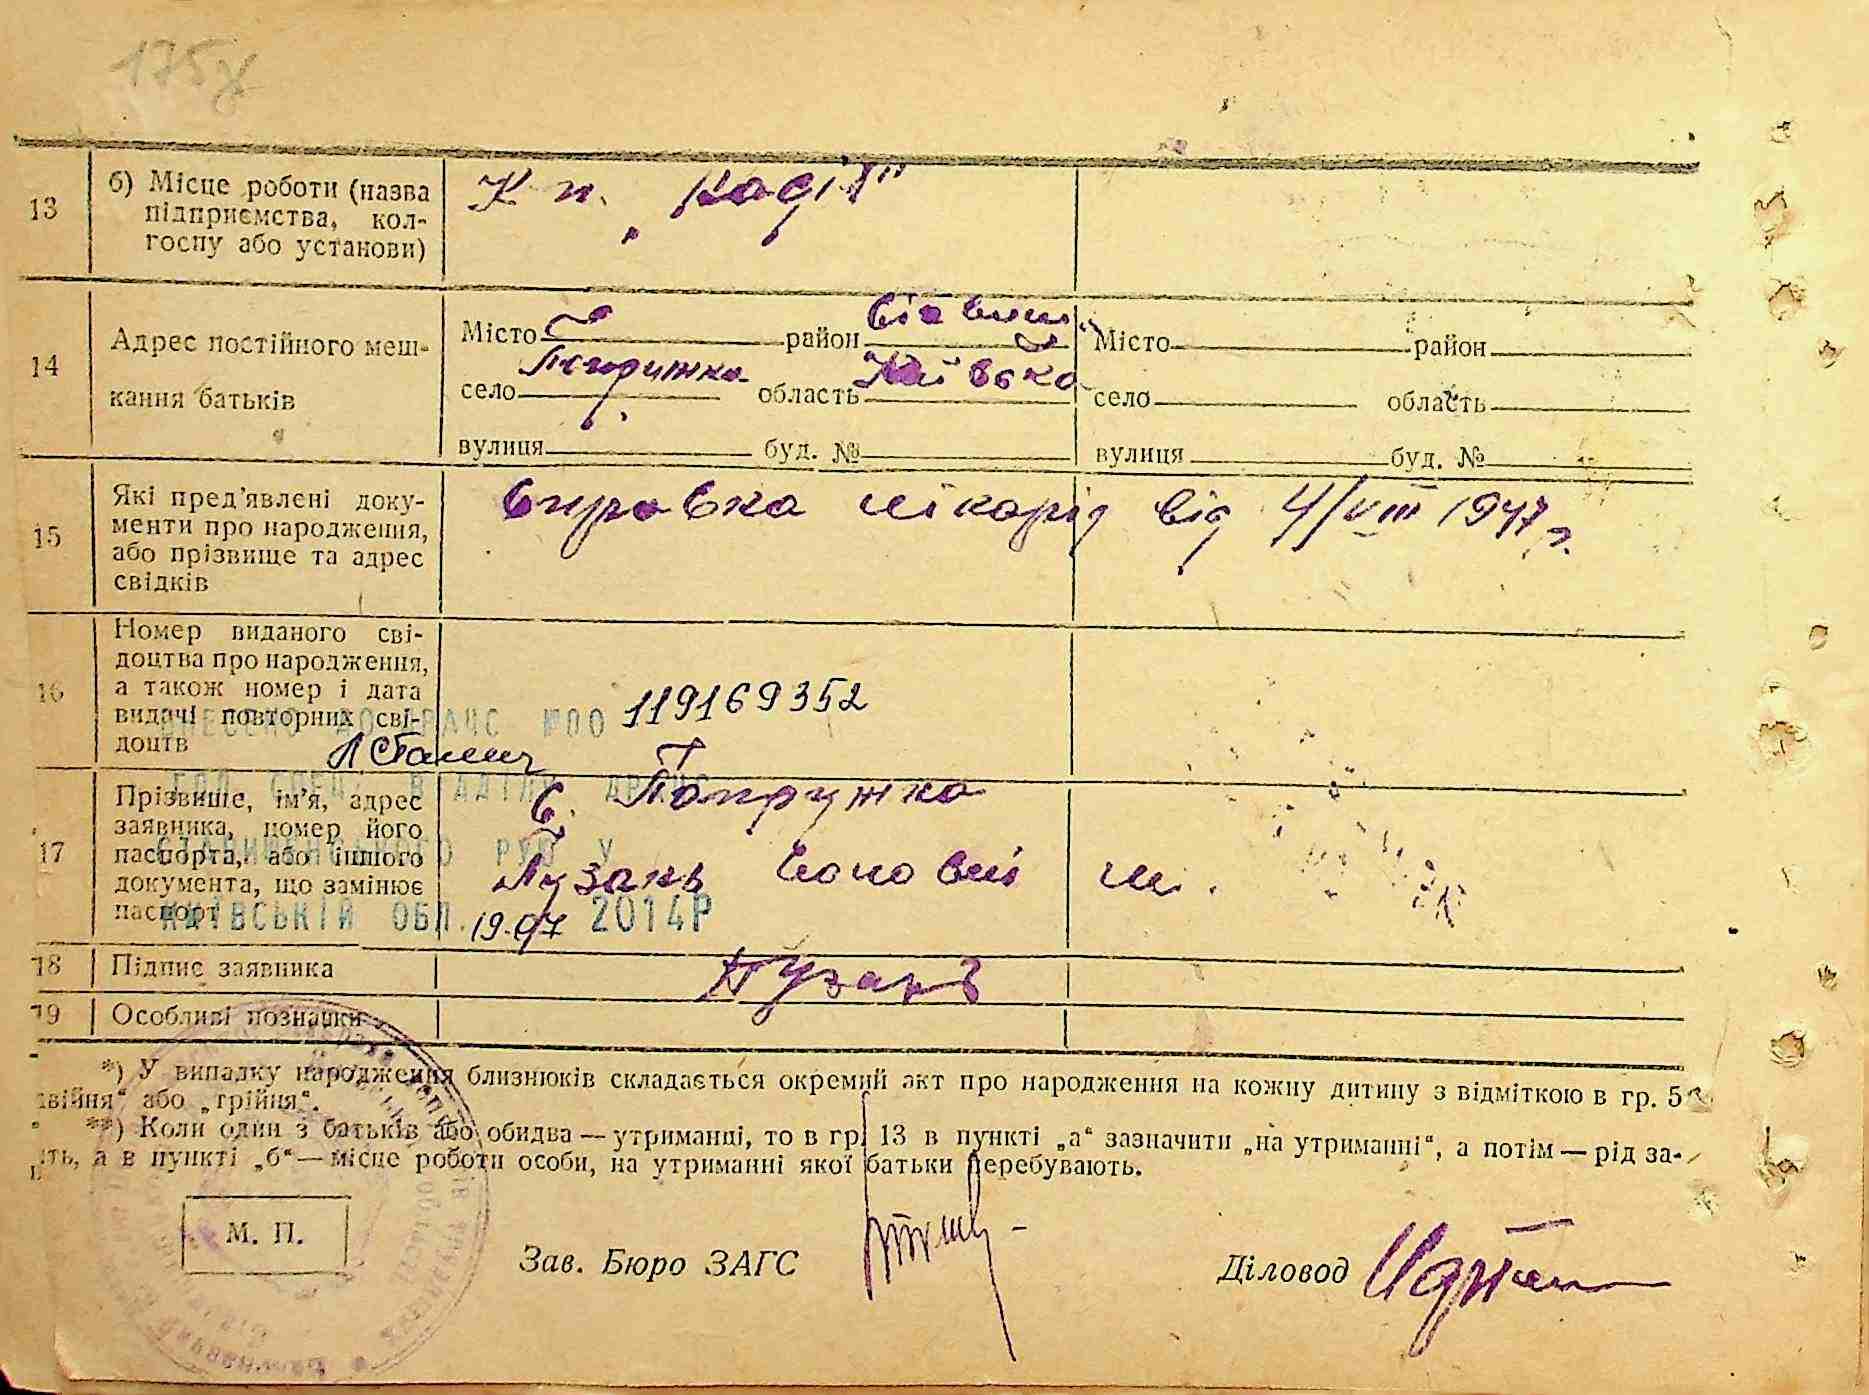 175
13 б) Місце роботи (назва
підприємства, кол-
госпу або установи)
К п.
14 Адрес постійного меш-
кання батьків
Місто С район
село область Київська
вулиця буд. №
Місто район
село область
вулиця буд. №
15 Які пред'явлені доку-
менти про народження,
або прізвище та адрес
свідків
Справка лікарів від 4/VIII 1947 г.
16 Номер виданого сві-
доцтва про народження,
а також номер і дата
видачі повторних сві-
доцтв
ВНЕСЕНО ДО ДРАЦС №00 119169352
17 Прізвище, ім'я, адрес
заявника, номер його
паспорта, або іншого
документа, що замінює
паспорт
С. Попружна
Пузань
СТАВИЩЕНСЬКОГО РУЮ У
КИЇВСЬКІЙ ОБЛ. 19.07 2014Р
18 Підпис заявника Пузань
19 Особливі позначки
*) У випадку народження близнюків складається окремий акт про народження на кожну дитину з відміткою в гр. 5
двійня" або „трійня".
**) Коли один з батьків або обидва — утриманці, то в гр. 13 в пункті „а" зазначити „на утриманні", а потім — рід за-
ть, а в пункті „б" — місце роботи особи, на утриманні якої батьки перебувають.
М. П.
Зав. Бюро ЗАГС
Діловод